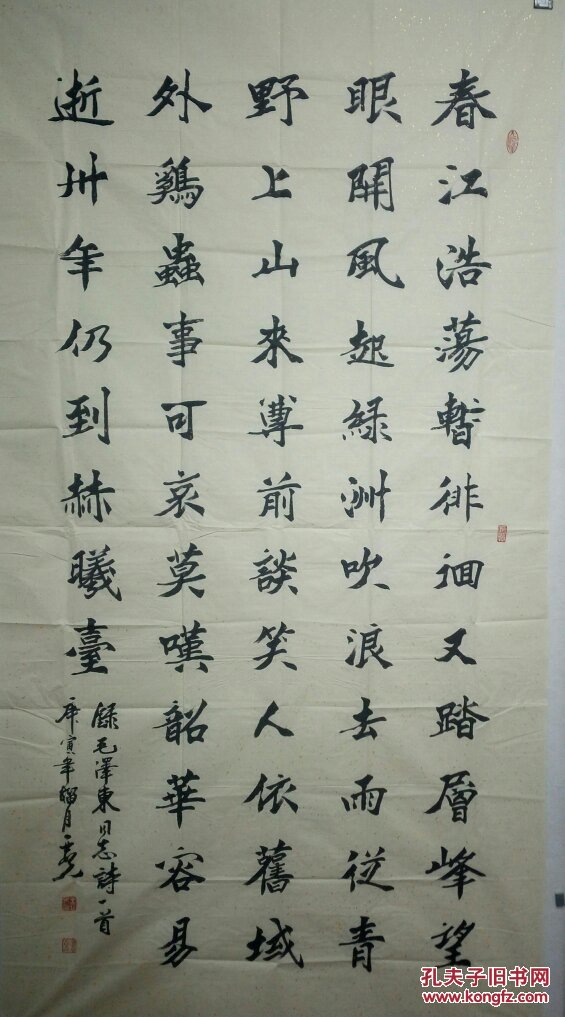 春江浩蕩暫徘徊又踏層峰望
眼開風起綠洲吹浪去雨從青
野上山來尊前談笑人依舊域
外鷄蟲事可哀莫嘆韶華容易
逝卅年仍到赫曦臺
錄毛澤東同志詩一首
庚寅年
孔夫子旧书网
www.kongfz.com